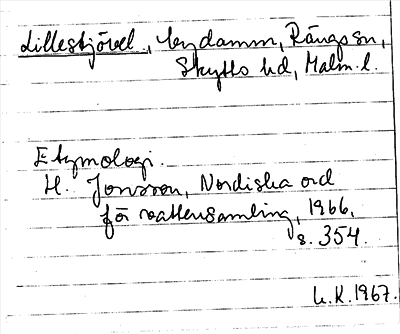 Lillestjövel, bydamm, Rängs sn,
Skytts hd, Malm. l.
Etymologi.
H. Jonsson, Nordiska ord
för vattensamling, 1966,
s. 354.
U.K. 1967.